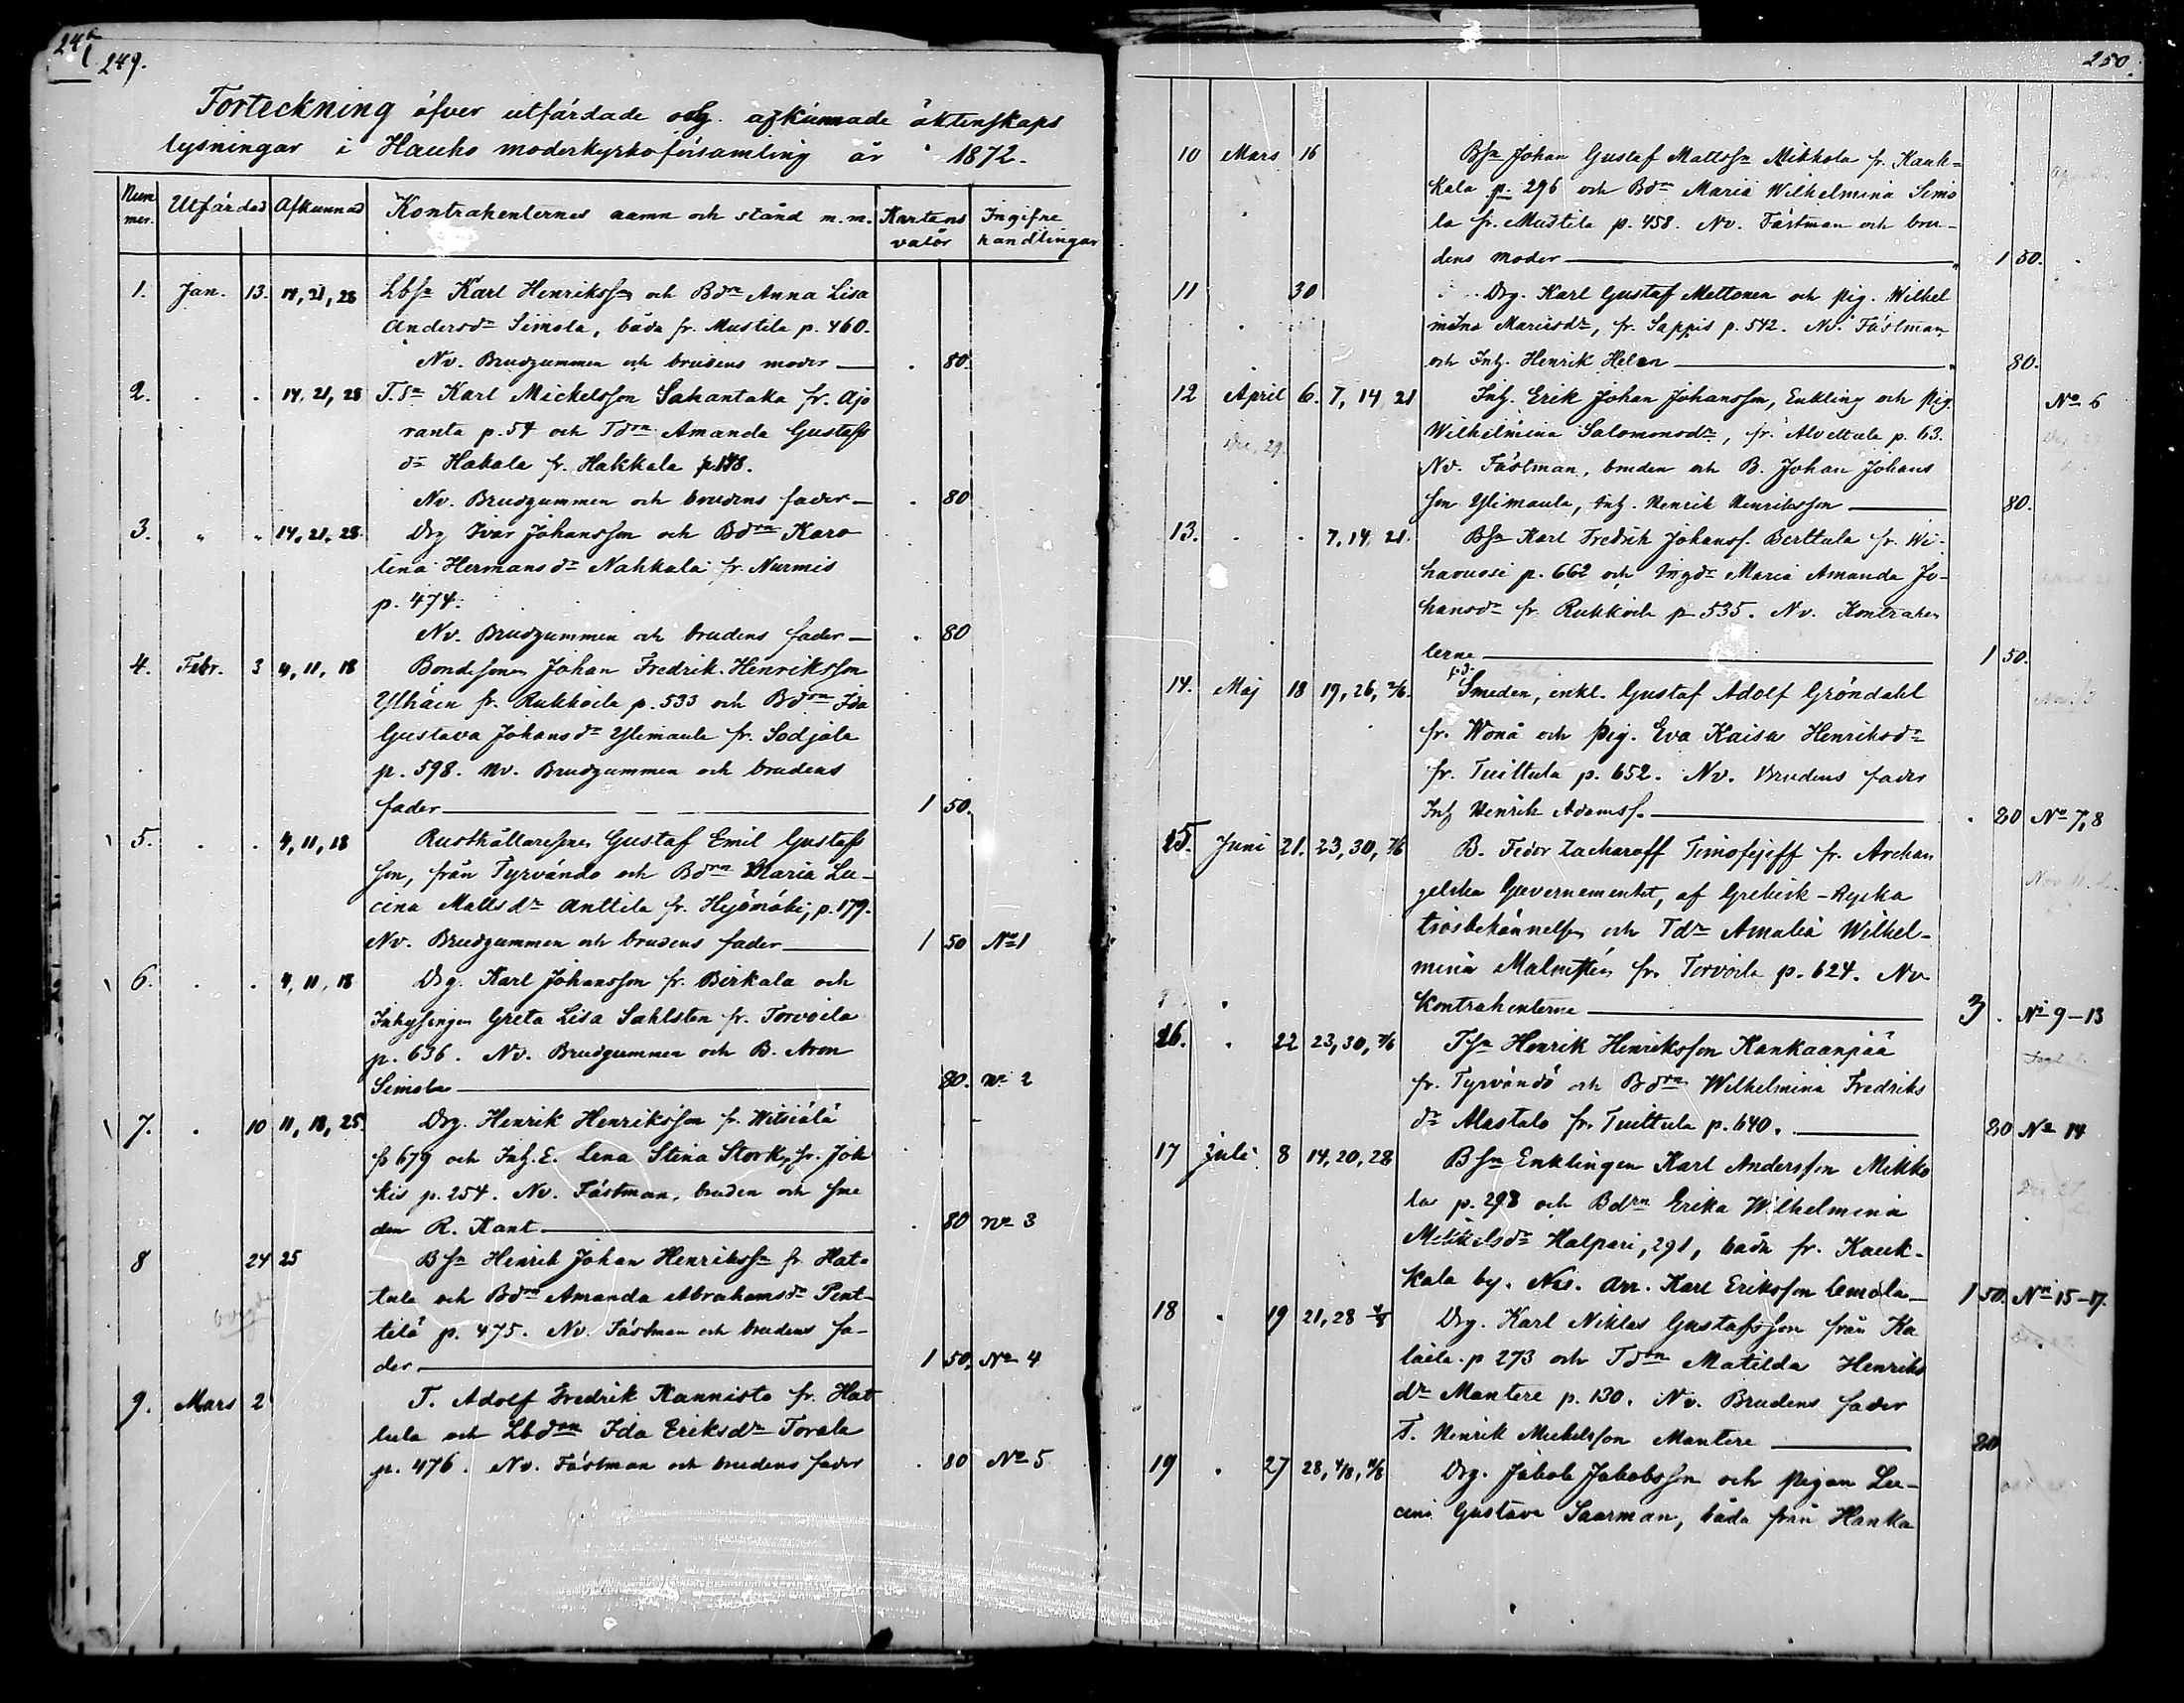 249.
Förteckning öfver utfärdade och afkunnade äktenskaps
lysningar i Hauho moderkyrkoförsamling år 1872.
Num mer. Utfärdad Afkunnad Kontrahenternes namn och stånd m.m. Kartans valör Ingifne handlingar
1. Jan. 13. 14, 21, 28 Lbsn Karl Henrikssn och Bdn Anna Lisa
Andersdr Simola, båda fr. Mustila p. 460.
Nv. Brudgummen och brudens moder — . 80.
2. . . 14, 21, 28 T.sn Karl Mickelsson Sahantaka fr. Ajo
ranta p. 54 och Tdrn Amanda Gustafs
dr Hakala fr. Hakkala p. 148.
Nv. Brudgummen och brudens fader — . 80
3. " " 14, 21, 28. Drg Ivar Johansson och Bdrn Karo
lina Hermansdr Nahkala fr. Nurmis
p. 474.
Nv. Brudgummen och brudens fader — . 80
4. Febr. 3 4, 11, 18 Bondesonen Johan Fredrik Henriksson
Ylhäin fr. Rukkoila p. 533 och Bdrn Ida
Gustava Johansdr Ylimaula fr. Sodjala
p. 598. Nv. Brudgummen och brudens
fader — 1 50.
5. . . 4, 11, 18 Rusthållaresonen Gustaf Emil Gustafs
son, från Tyrvändö och Bdrn Maria Lu-
cina Mattsdr Anttila fr. Hyömäki, p. 179.
Nv. Brudgummen och brudens fader — 1 50 No 1
6. . . 4, 11, 18 Drg. Karl Johansson fr. Birkala och
Inhysingen Greta Lisa Sahlsten fr. Torvoila
p. 636. Nv. Brudgummen och B. Aron
Simola — 80. no 2
7. . 10 11, 18, 25. Drg. Henrik Henriksson fr. Witsiälä
p 679 och Inh. E. Lena Stina Stork, fr. Jok
kis p. 254. Nv. Fästman, bruden och sme
den R. Kant — . 80 no 3
8 24 25 Bsn Henrik Johan Henrikssn fr. Hat-
tula och Bdrn Amanda Abrahamsdr Pent-
tilä p. 475. Nv. Fästman och brudens fa-
der — 1 50. No 4
9. Mars 2 T. Adolf Fredrik Kannisto fr. Hat
tula och Lbdrn Ida Eriksdr Torala
p. 476. Nv. Fästman och brudens fader . 80 No 5
250.
10 Mars 16 Bsn Johan Gustaf Mattssn Mikkola fr. Kauk-
kala p. 296 och Bdrn Maria Wilhelmina Simo
la fr. Mustila p. 458. Nv. Fästman och bru-
dens moder — 1 50.
11 30 Drg. Karl Gustaf Mettonen och pig. Wilhel
mina Mariasdr, fr. Sappis p. 542. Nv. Fästman
och Inh. Henrik Helen — 80.
12 April 6. 7, 14 21 Inh. Erik Johan Johansson, Enkling och pig. No 6
Wilhelmina Salomonsdr, fr. Alvettula p. 63.
Nv. Fästman, bruden och B. Johan Johans
son Ylimaula, Inh. Henrik Henriksson — 80.
13. . . 7, 14 21. Bsn Karl Fredrik Johanss. Berttula fr. Wi-
havuosi p. 662 och Ingdr Maria Amanda Jo-
hansdr fr. Rukkoila p 535. Nv. Kontrahen
terne — 1 50.
14. Maj 18 19, 26, 2/6. Smeden, enkl. Gustaf Adolf Gröndahl
fr. Wonå och pig. Eva Kaisa Henriksdr
fr. Tuittula p. 652. Nv. Brudens fader
Inh Henrik Adamss. — . 80 No 7, 8
15. Juni 21. 23, 30, 7/6 B. Fedor Zacharoff Timofejeff fr. Archan
gelska Guvernementet, af Grekisk-Ryska
trosbekännelsen och Tdr Amalia Wilhel-
mina Malmstén fr. Torvoila p. 624. Nv
Kontrahenterne — 3 . No 9-13
16. . 22 23, 30, 7/6 Tsn Henrik Henriksson Kankaanpää
fr. Tyrvändö och Bdrn Wilhelmina Fredriks
dr Alastalo fr. Tuittula p. 640. — 80 No 14
17 Juli 8 14, 20, 28 Bsn Enklingen Karl Andersson Mikko
la p. 298 och Bdrn Erika Wilhelmina
Mikkelsdr Halpari, 291, båda fr. Kauk-
kala by. När. Arr. Karl Eriksson Lemola — 1 50. No 15-17.
18 . 19 21, 28 4/8 Drg. Karl Niklas Gustafsson från Ka
laila p 273 och Tdrn Matilda Henriks
dr Mantere p. 130. Nv. Brudens fader
T. Henrik Mickelsson Mantere — 80
19 . 27 28, 4/8, 11/8 Drg. Jakob Jakobsson och pigan Lu-
cina Gustava Saarman, båda från Hanka